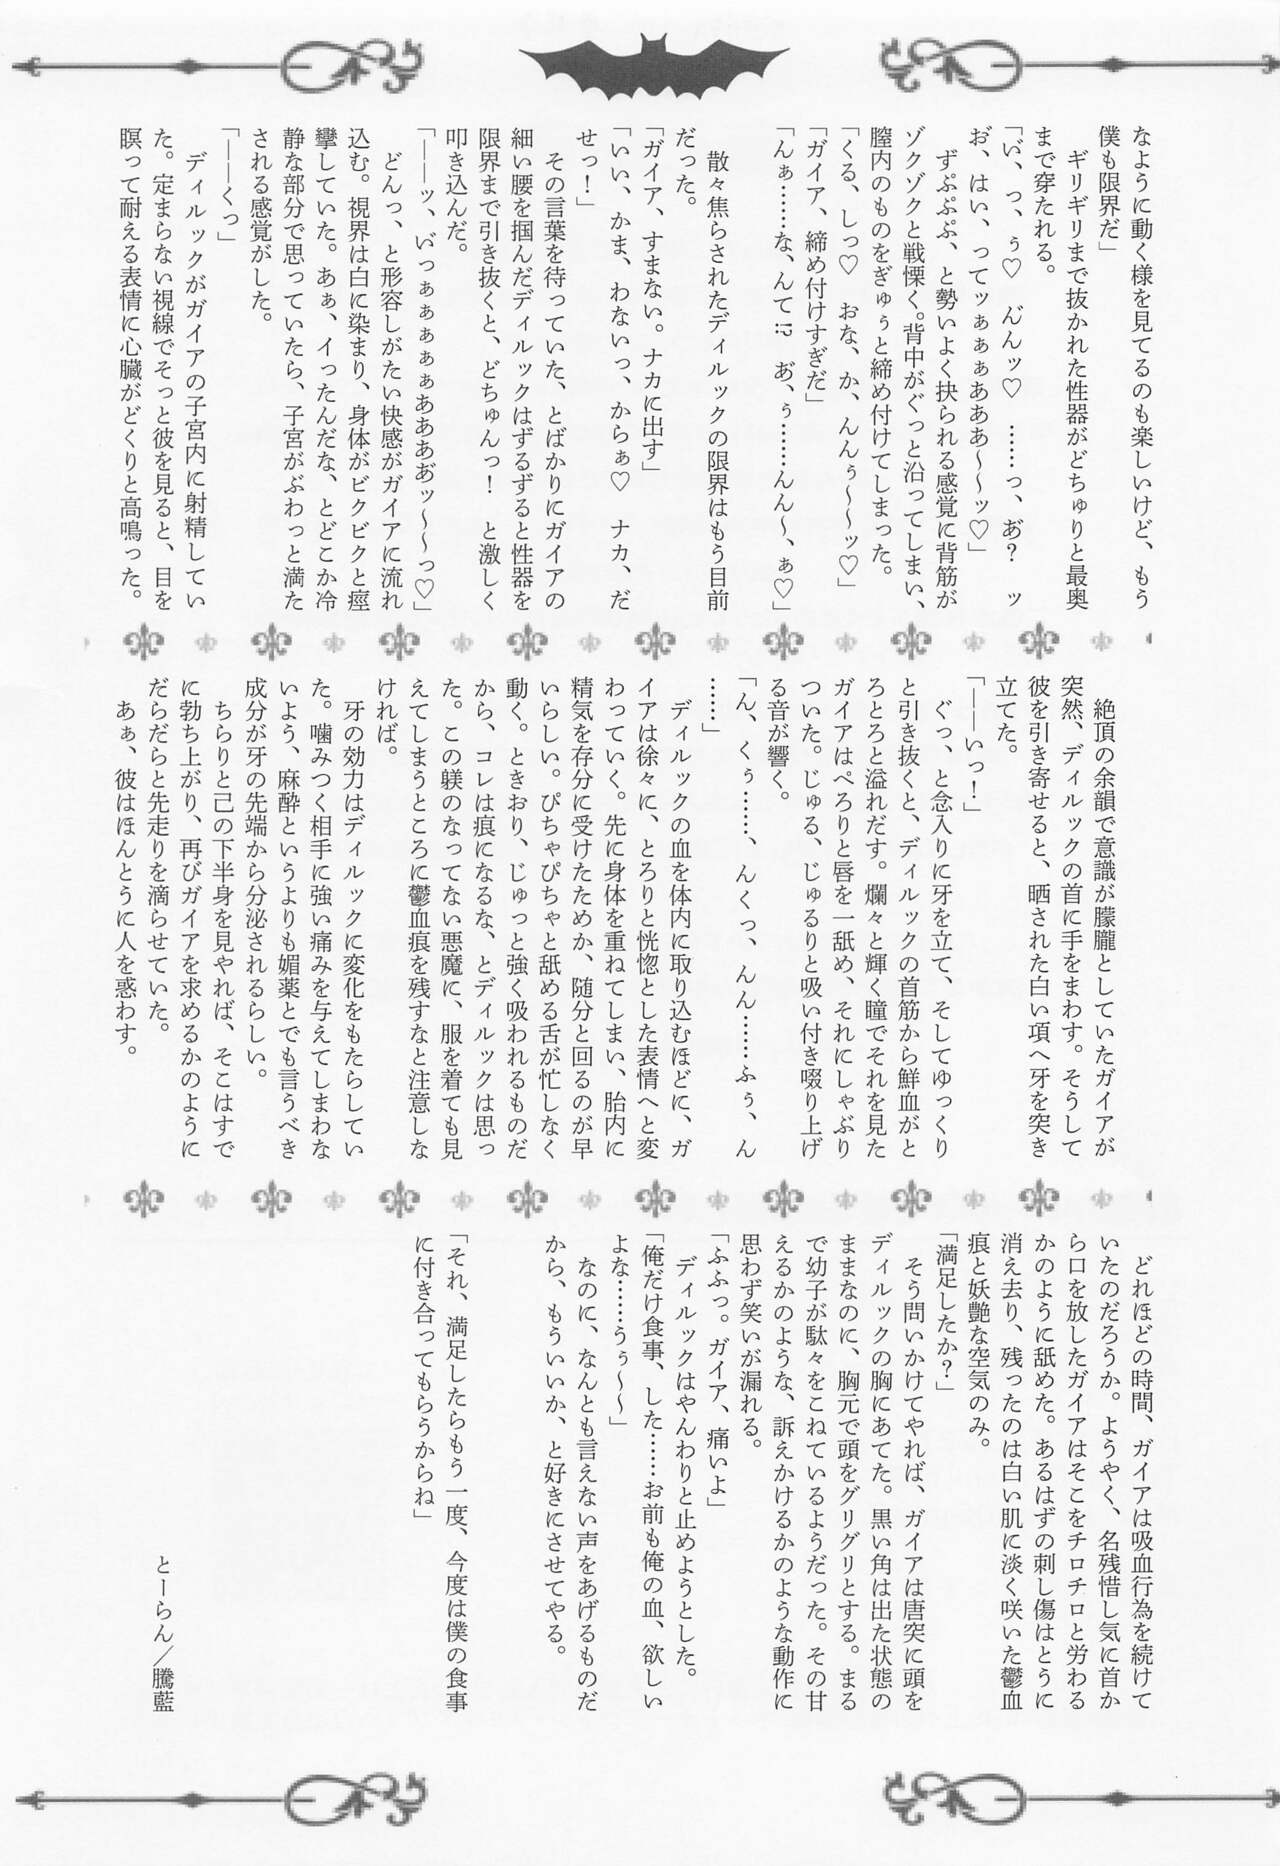 なように動く様を見てるのも楽しいけど、もう
僕も限界だ」
　ギリギリまで抜かれた性器がどちゅりと最奥
まで穿たれる。
「い゙、っ、ぅ♡　ん゙んッ♡　……っ、あ゙？　ッ
お゙、はい、ってッぁぁぁあああ～～ッ♡」
　ずぷぷぷ、と勢いよく抉られる感覚に背筋が
ゾクゾクと戦慄く。背中がぐっと沿ってしまい、
膣内のものをぎゅぅと締め付けてしまった。
「くる、しっ♡　おな、か、んんぅ～～ッ♡」
「ガイア、締め付けすぎだ」
「んぁ……な、んて⁉　あ゙、ぅ……んん～、ぁ♡」
　散々焦らされたディルックの限界はもう目前
だった。
「ガイア、すまない。ナカに出す」
「いい、かま、わないっ、からぁ♡　ナカ、だ
せっ！」
　その言葉を待っていた、とばかりにガイアの
細い腰を掴んだディルックはずるずると性器を
限界まで引き抜くと、どちゅんっ！　と激しく
叩き込んだ。
「――ッ、い゙っぁぁぁぁぁあああぢッ～～っ♡」
　どんっ、と形容しがたい快感がガイアに流れ
込む。視界は白に染まり、身体がビクビクと痙
攣していた。あぁ、イったんだな、とどこか冷
静な部分で思っていたら、子宮がぶわっと満た
される感覚がした。
「――くっ」
　ディルックがガイアの子宮内に射精してい
た。定まらない視線でそっと彼を見ると、目を
瞑って耐える表情に心臓がどくりと高鳴った。
　絶頂の余韻で意識が朦朧としていたガイアが
突然、ディルックの首に手をまわす。そうして
彼を引き寄せると、晒された白い項へ牙を突き
立てた。
「――いっ！」
　ぐっ、と念入りに牙を立て、そしてゆっくり
と引き抜くと、ディルックの首筋から鮮血がと
ろとろと溢れだす。爛々と輝く瞳でそれを見た
ガイアはぺろりと唇を一舐め、それにしゃぶり
ついた。じゅる、じゅるりと吸い付き啜り上げ
る音が響く。
「ん、くぅ……、んくっ、んん……ふぅ、ん
……」
　ディルックの血を体内に取り込むほどに、ガ
イアは徐々に、とろりと恍惚とした表情へと変
わっていく。先に身体を重ねてしまい、胎内に
精気を存分に受けたためか、随分と回るのが早
いらしい。ぴちゃぴちゃと舐める舌が忙しなく
動く。ときおり、じゅっと強く吸われるものだ
から、コレは痕になるな、とディルックは思っ
た。この躾のなってない悪魔に、服を着ても見
えてしまうところに鬱血痕を残すなと注意しな
ければ。
　牙の効力はディルックに変化をもたらしてい
た。噛みつく相手に強い痛みを与えてしまわな
いよう、麻酔というよりも媚薬とでも言うべき
成分が牙の先端から分泌されるらしい。
　ちらりと己の下半身を見やれば、そこはすで
に勃ち上がり、再びガイアを求めるかのように
だらだらと先走りを滴らせていた。
　あぁ、彼はほんとうに人を惑わす。
　どれほどの時間、ガイアは吸血行為を続けて
いたのだろうか。ようやく、名残惜し気に首か
ら口を放したガイアはそこをチロチロと労わる
かのように舐めた。あるはずの刺し傷はとうに
消え去り、残ったのは白い肌に淡く咲いた鬱血
痕と妖艶な空気のみ。
「満足したか？」
　そう問いかけてやれば、ガイアは唐突に頭を
ディルックの胸にあてた。黒い角は出た状態の
ままなのに、胸元で頭をグリグリとする。まる
で幼子が駄々をこねているようだった。その甘
えるかのような、訴えかけるかのような動作に
思わず笑いが漏れる。
「ふふっ。ガイア、痛いよ」
　ディルックはやんわりと止めようとした。
「俺だけ食事、した……お前も俺の血、欲しい
よな……うぅ～～」
　なのに、なんとも言えない声をあげるものだ
から、もういいか、と好きにさせてやる。
「それ、満足したらもう一度、今度は僕の食事
に付き合ってもらうからね」
とーらん／騰藍